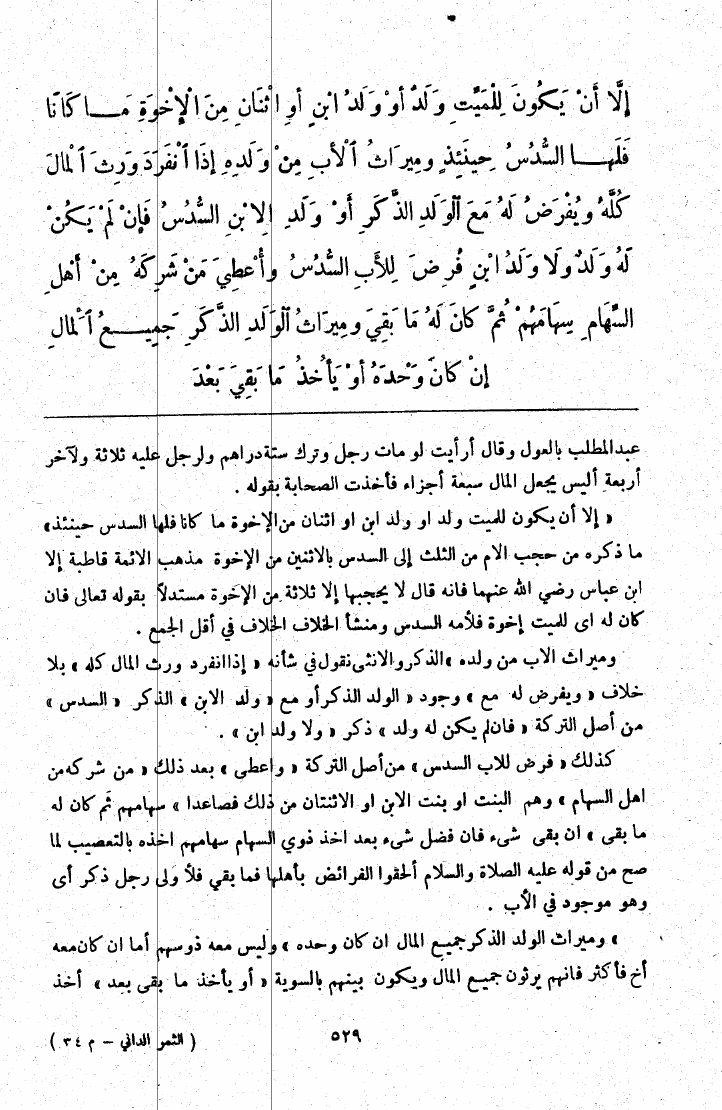 إِلَّا أَنْ يَكُونَ لِلْمَيِّتِ وَلَدٌ أَوْ وَلَدُ ابْنٍ أَوِ اثْنَانِ مِنَ الْإِخْوَةِ مَا كَانَا
فَلَهَا السُّدُسُ حِينَئِذٍ وَمِيرَاثُ الْأَبِ مِنْ وَلَدِهِ إِذَا انْفَرَدَ وَرِثَ الْمَالَ
كُلَّهُ وَيُفْرَضُ لَهُ مَعَ الْوَلَدِ الذَّكَرِ أَوْ وَلَدِ الِابْنِ السُّدُسُ فَإِنْ لَمْ يَكُنْ
لَهُ وَلَدٌ وَلَا وَلَدُ ابْنٍ فُرِضَ لِلْأَبِ السُّدُسُ وَأُعْطِيَ مَنْ شَرِكَهُ مِنْ أَهْلِ
السِّهَامِ سِهَامَهُمْ ثُمَّ كَانَ لَهُ مَا بَقِيَ وَمِيرَاثُ الْوَلَدِ الذَّكَرِ جَمِيعُ الْمَالِ
إِنْ كَانَ وَحْدَهُ أَوْ يَأْخُذُ مَا بَقِيَ بَعْدَ
عبدالمطلب بالعول وقال أرأيت لو مات رجل وترك ستة دراهم ولرجل عليه ثلاثة ولآخر
أربعة أليس يجعل المال سبعة أجزاء فأخذت الصحابة بقوله .
« إلا أن يكون للميت ولد او ولد ابن او اثنان من الإخوة ما كانا فلها السدس حينئذ»
ما ذكره من حجب الام من الثلث إلى السدس بالاثنين من الإخوة مذهب الائمة قاطبة إلا
ابن عباس رضي الله عنهما فانه قال لا يحجبها إلا ثلاثة من الإخوة مستدلاً بقوله تعالى فان
كان له اى للميت إخوة فلأمه السدس ومنشأ الخلاف الخلاف في أقل الجمع .
وميراث الاب من ولده »الذكر والانثى نقول في شأنه « إذا انفرد ورث المال كله » بلا
خلاف « ويفرض له مع » وجود « الولد الذكر أو مع « ولد الابن » الذكر « السدس »
من أصل التركة « فان لم يكن له ولد » ذكر « ولا ولد ابن » .
كذلك « فرض للاب السدس » من أصل التركة « واعطى » بعد ذلك « من شركه من
اهل السهام » وهم البنت او بنت الابن او الاثنتان من ذلك فصاعدا » سهامهم ثم كان له
ما بقى » ان بقى شىء فان فضل شىء بعد اخذ ذوي السهام سهامهم اخذه بالتعصيب لما
صح من قوله عليه الصلاة والسلام ألحقوا الفرائض بأهلها فما بقي فلأولى رجل ذكر أى
وهو موجود في الأب .
» وميراث الولد الذكر جميع المال ان كان وحده » وليس معه ذوسهم أما ان كان معه
أخ فأكثر فانهم يرثون جميع المال ويكون بينهم بالسوية « أو يأخذ ما بقى بعد » أخذ
٥٢٩
( الثمر الداني – م ٣٤ )